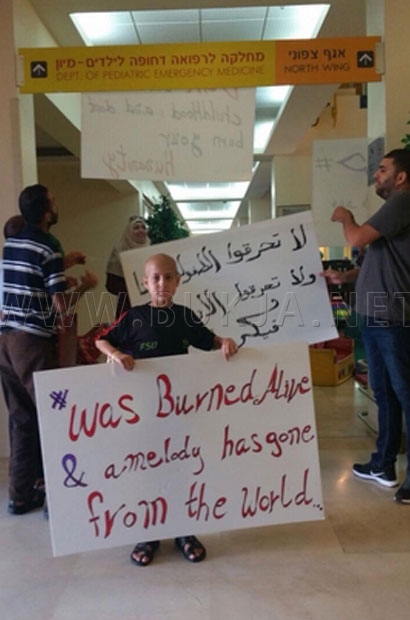 מחלקה לרפואה דחופה לילדים-מיון
DEPT. OF PEDIATRIC EMERGENCY MEDICINE
אגף צפוני
NORTH WING
childhood and don't
burn your
humanity
#
لا تحرقوا
ولا تحرقوا
فيكم
WWW.BUYJA.NET
FSO
#Was Burned Alive
& a melody has gone
from the world...